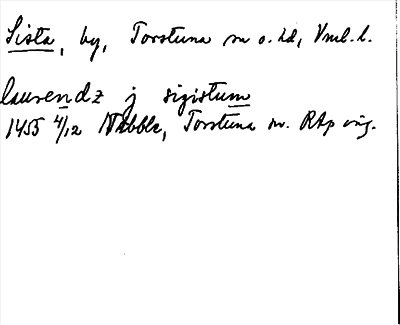 Sista, by, Torstuna sn o. hd, Vml. l.
laurendz j sigistum
1455 4/12 Näbble, Torstuna sn. RAp orig.